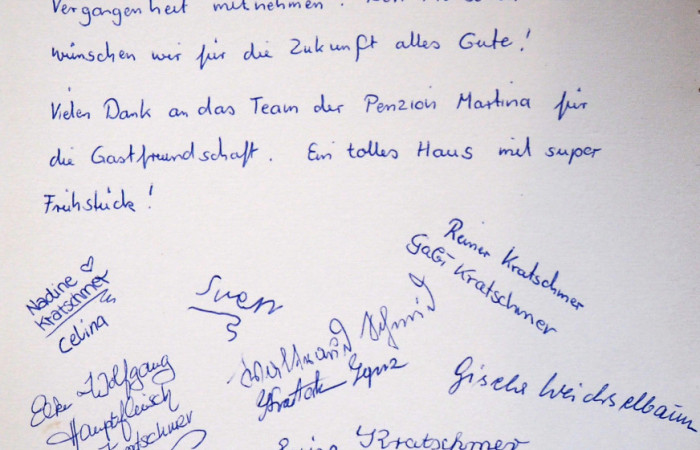 Vergangenheit mitnehmen.
wünschen wir für die Zukunft alles Gute!
Vielen Dank an das Team der Penzion Martina für
die Gastfreundschaft. Ein tolles Haus mit super
Frühstück!
Reiner Kratschmer
Gabi Kratschmer
Nadine
Kratschmer
Celina
Sven
Wolfgang
Hauptfleisch
Kratschmer
Gisela Weichselbaum
Kratschmer